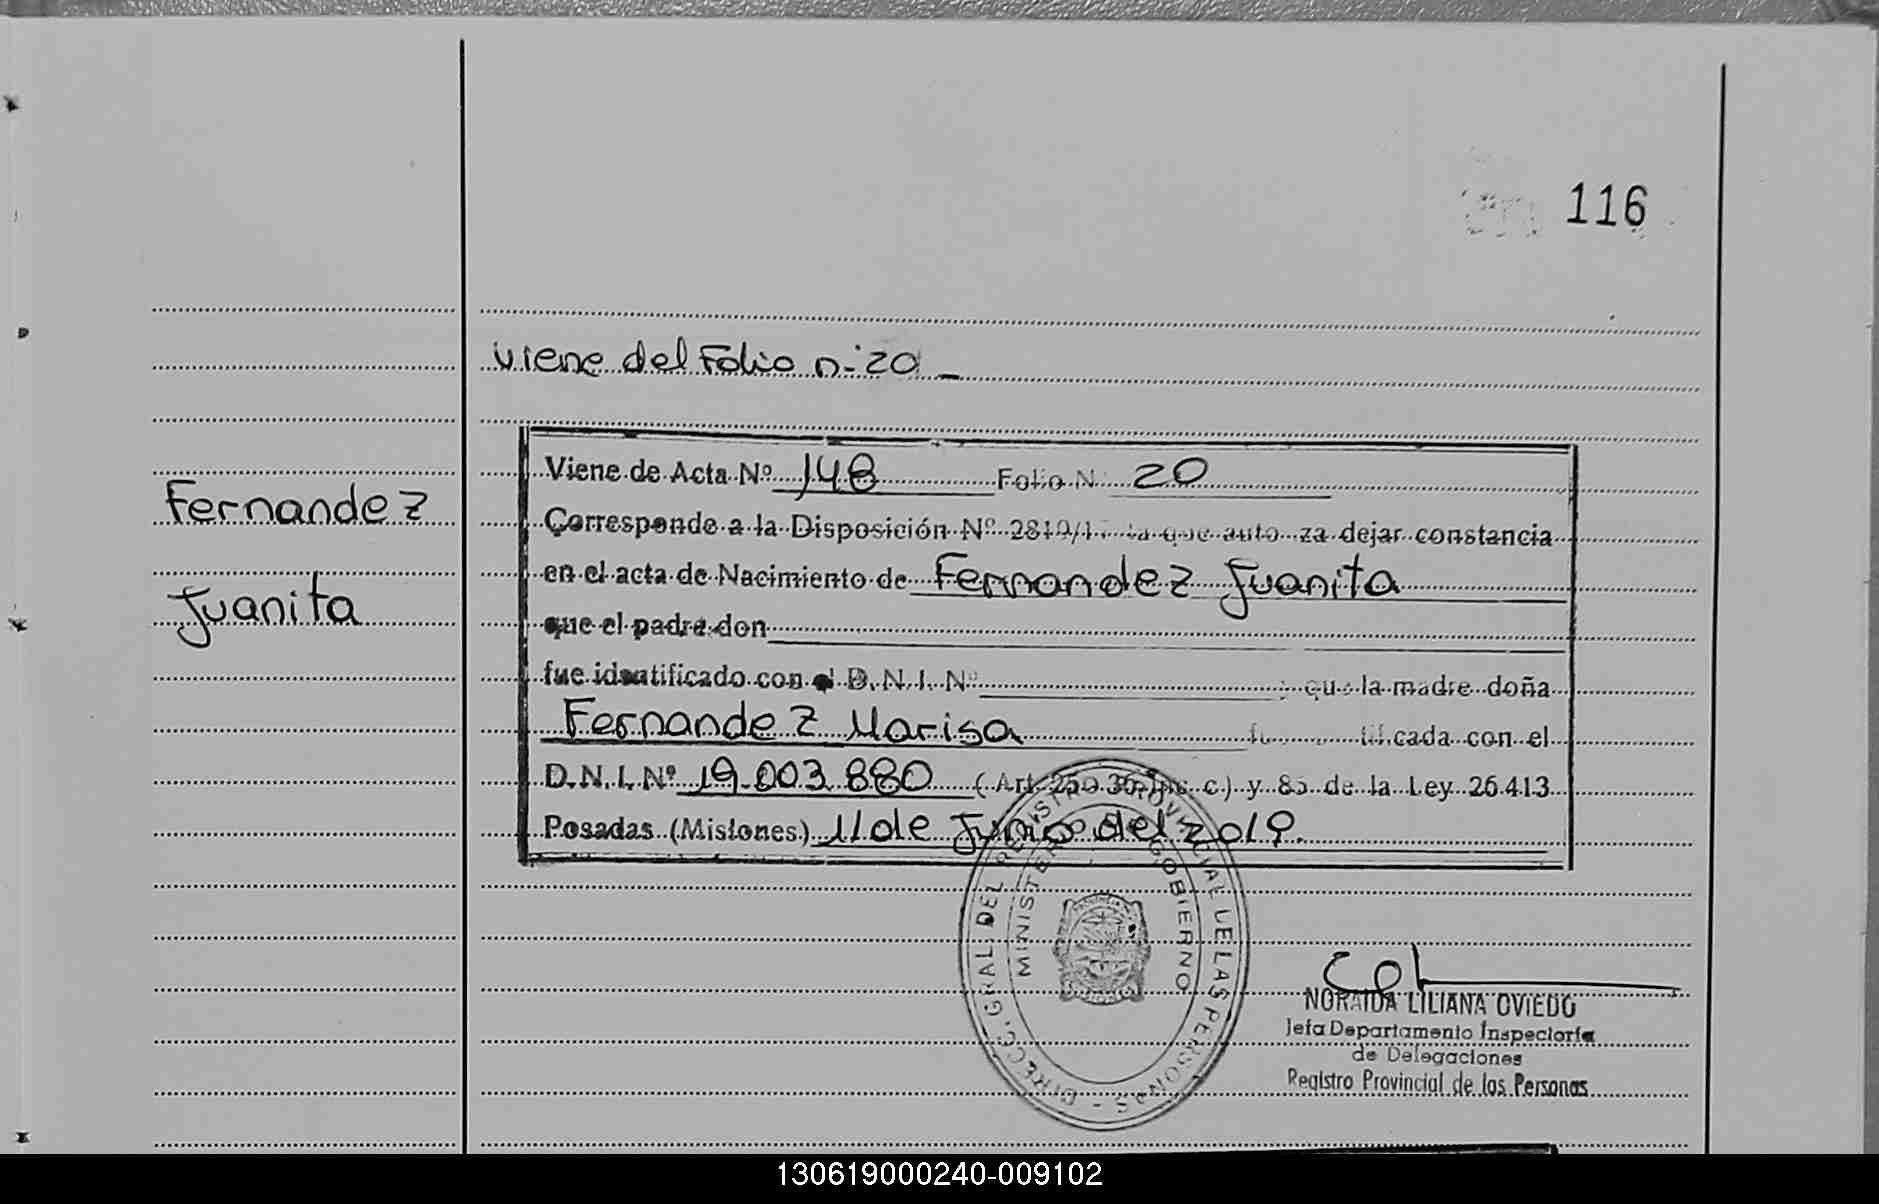 116
Viene del Folio n° 20 _
Fernandez
Juanita
Viene de Acta Nº 148 Folio N 20
Corresponde a la Disposición Nº 2819/1 la que auto za dejar constancia
en el acta de Nacimiento de Fernandez Juanita
que el padre don
fue identificado con el D.N.I. Nº ; que la madre doña
Fernandez Marisa cada con el
D.N.I. Nº 19.003.880 (Art. 25 o 36 Inc. c.) y 85 de la Ley 26.413
Posadas (Misiones) 11 de Junio del 2019.
DIRECC. GRAL. DEL REGISTRO PROVINCIAL DE LAS PERSONAS -
MINISTERIO GOBIERNO
NORAIDA LILIANA OVIEDO
Jefa Departamento Inspectoría
de Delegaciones
Registro Provincial de las Personas
130619000240-009102